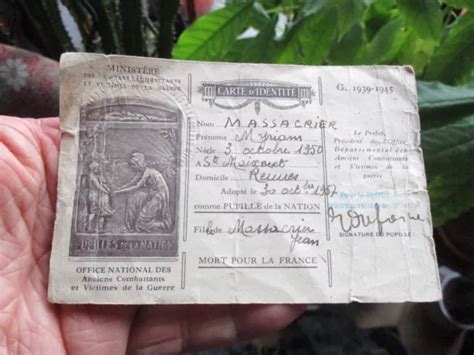 MINISTÈRE
DES ANCIENS COMBATTANTS
ET VICTIMES DE LA GUERRE
PUPILLES DE LA NATION
OFFICE NATIONAL DES
Anciens Combattants
et Victimes de la Guerre
CARTE D'IDENTITÉ
Nom MASSACRIER
Prénoms Myriam
Née le 3 octobre 1950
à St Maixent
Domicile Rennes
Adopté le 30 octbre 1957
comme PUPILLE DE LA NATION
Fille de Massacrier
Jean
MORT POUR LA FRANCE
G. 1939-1945
Le Préfet,
Président de l'Office
Départemental des
Anciens Combattants
et Victimes de la guerre
SIGNATURE DU PUPILLE